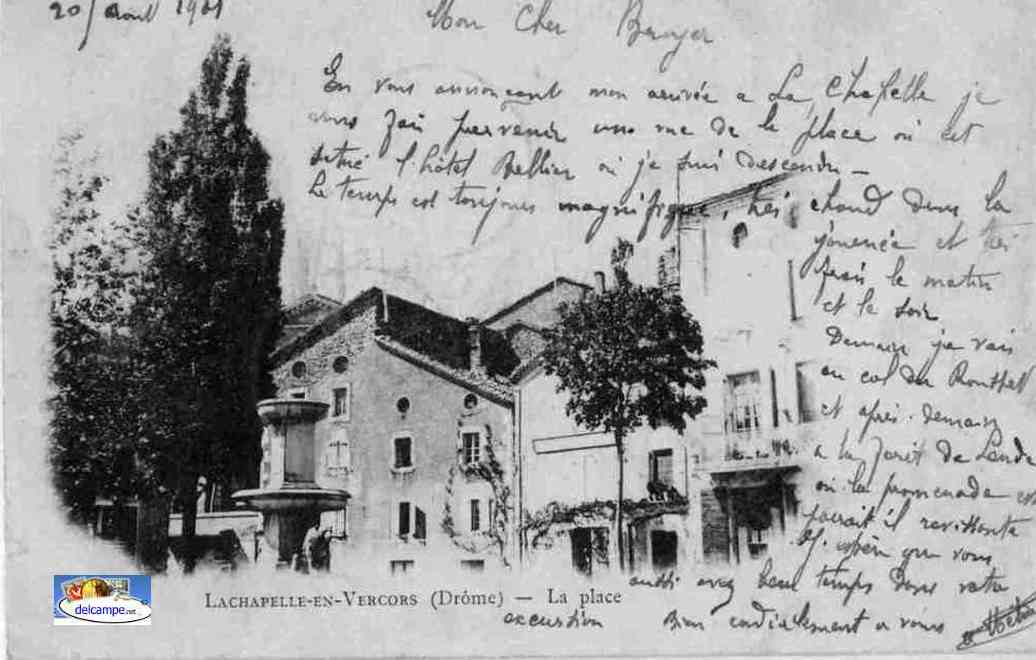 20/ Août 1901
Mon Cher Bruyer
En vous annonçant mon arrivée a La Chapelle je
vous fais parvenir une vue de la place où est
situé l'hôtel Bellier où je suis descendu –
Le temps est toujours magnifique, très chaud dans la
journée et très
frais le matin
et le soir
Demain je vais
au col du Rousset
et après-demain
a la forêt de Lente
où la promenade est
parait il ravissante
J'espère que vous
aussi avez beau temps dans votre
excursion
Bien cordialement a vous
LACHAPELLE-EN-VERCORS (Drôme) — La place
delcampe.net